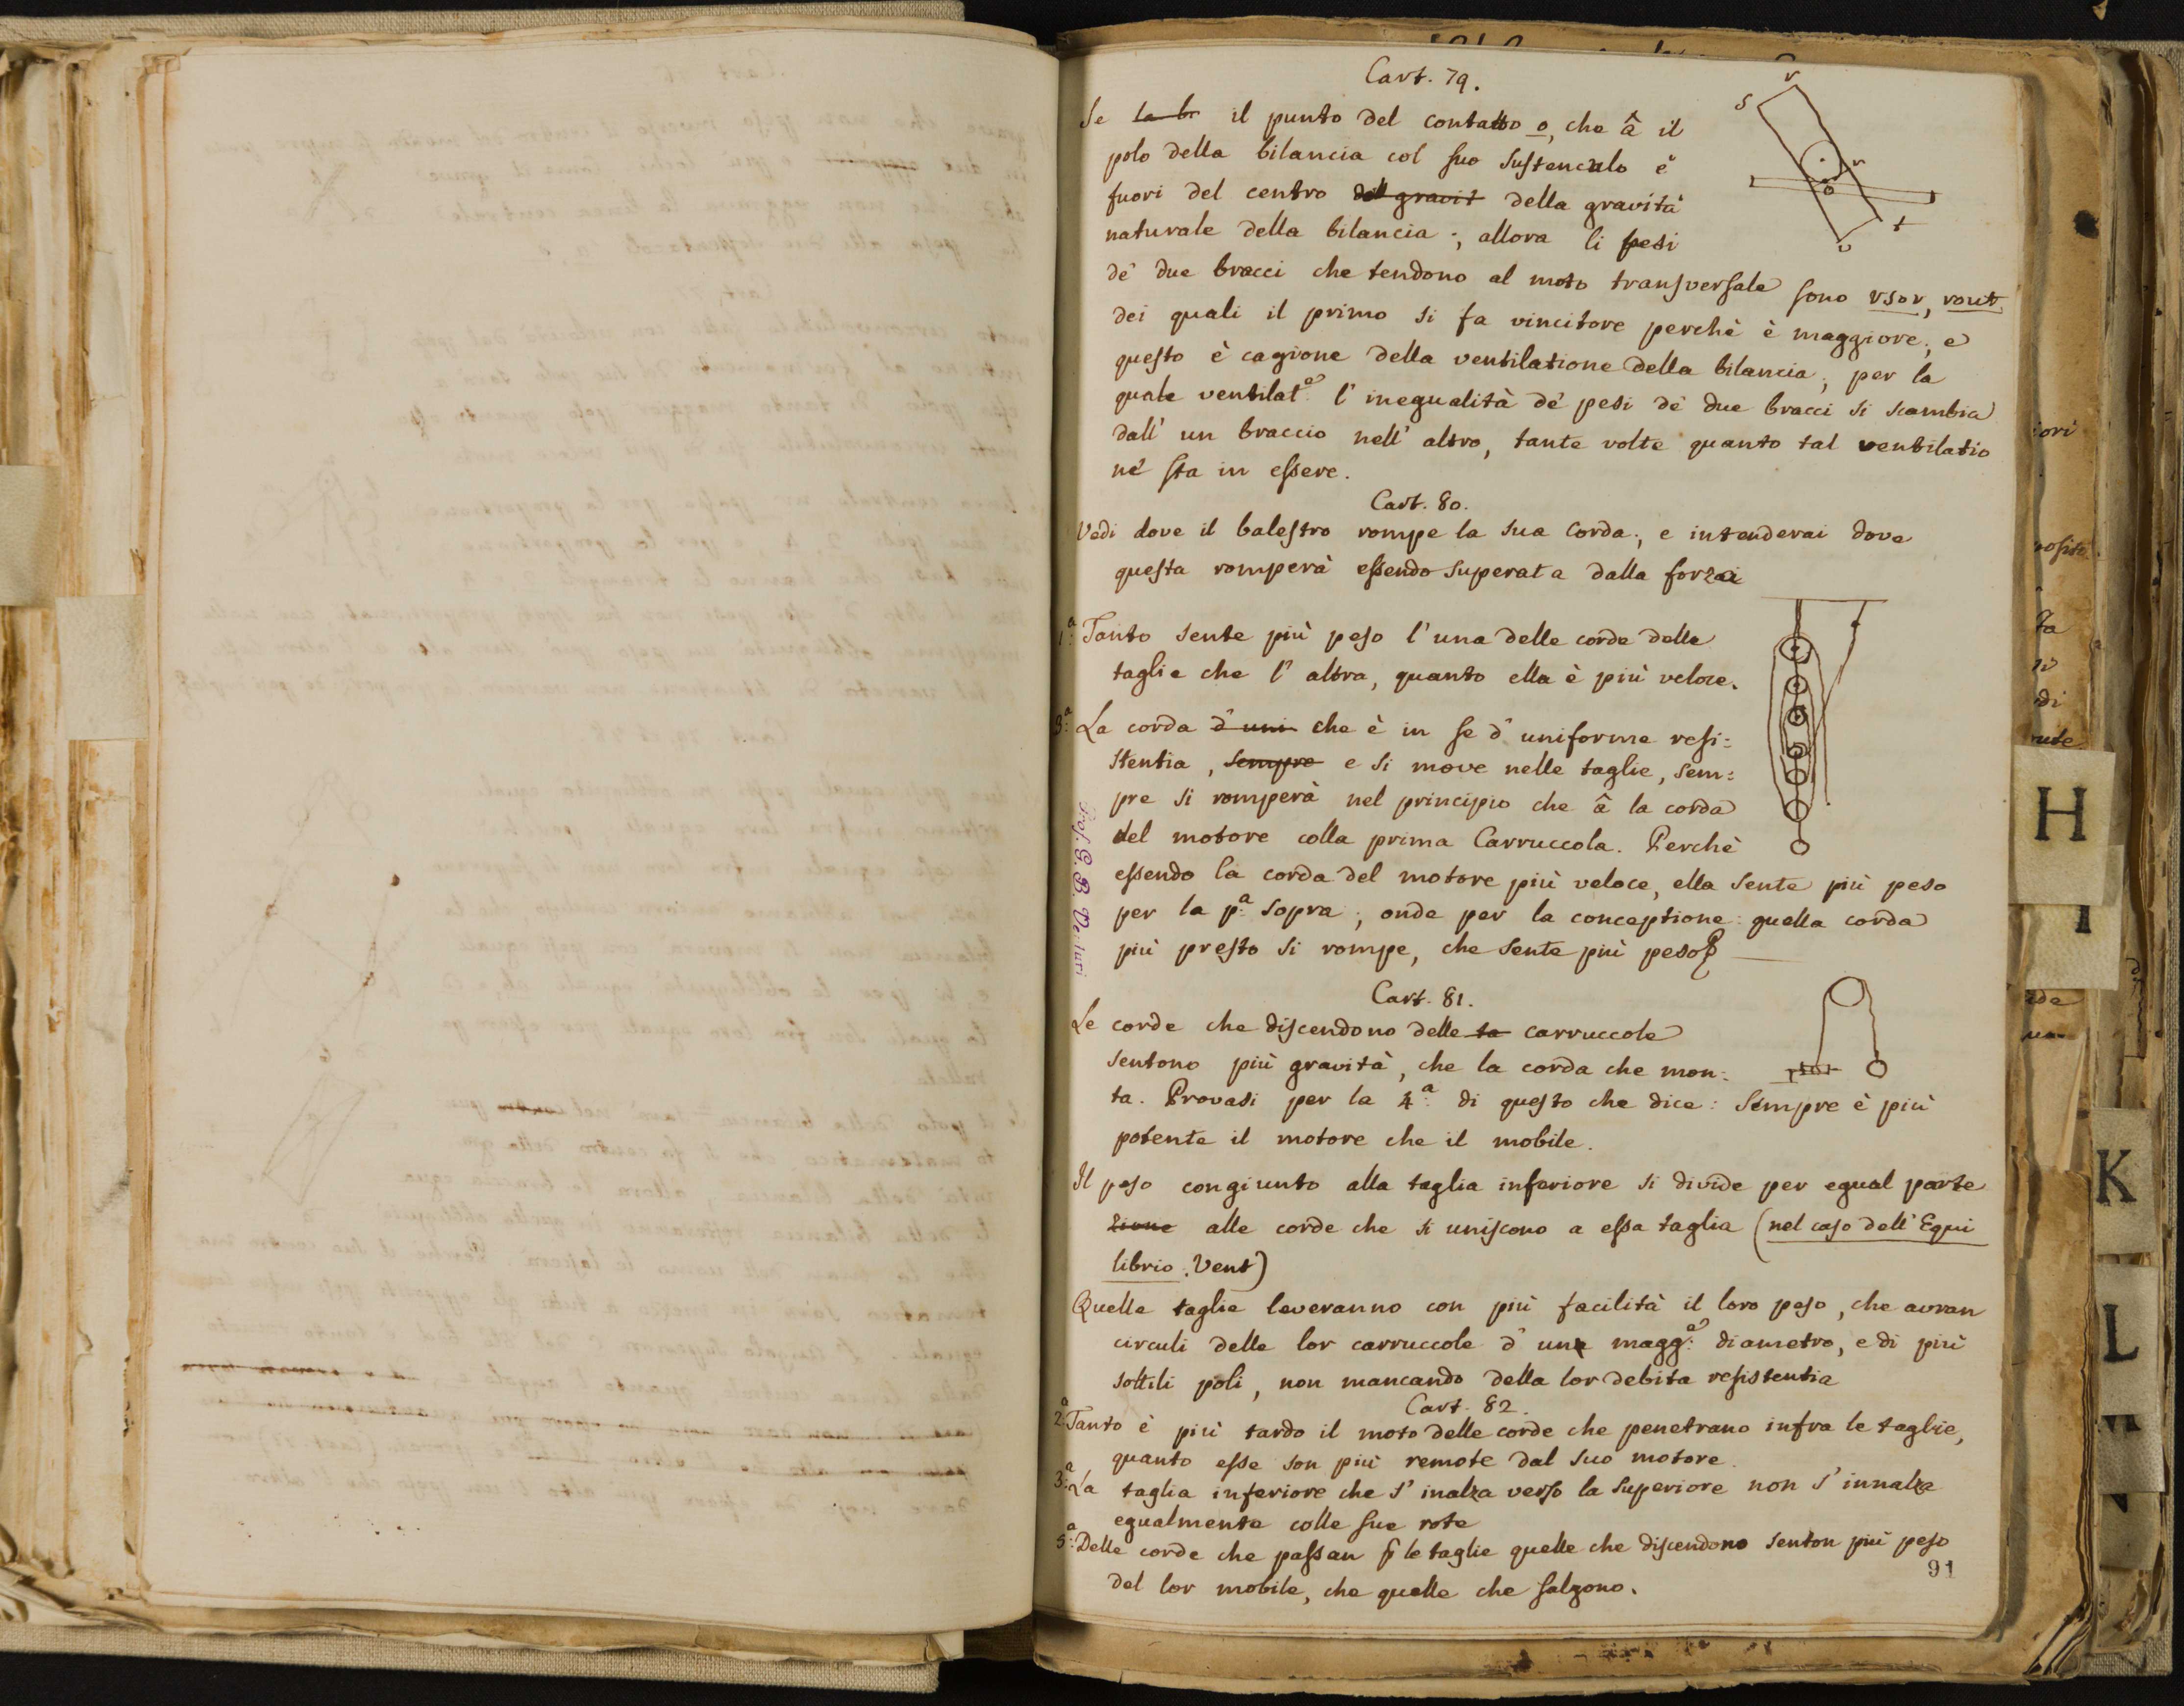 Cart. 79.
Se la br il punto del contatto o, che â il
polo della bilancia col suo sustenculo è
fuori del centro dell gravit della gravità
naturale della bilancia; allora li pesi
de' due bracci che tendono al moto transversale sono vsov, vout
dei quali il primo si fa vincitore perchè è maggiore; e
questo è cagione della ventilatione della bilancia; per la
quale ventilat.e l'inegualità de' pesi de' due bracci si scambia
dall' un braccio nell' altro, tante volte quanto tal ventilatio
ne sta in essere.
Cart. 80.
Vedi dove il balestro rompe la sua corda; e intenderai dove
questa romperà essendo superata dalla forza
1.a Tanto sente più peso l'una delle corde delle
taglie che l'altra, quanto ella è più veloce.
3.a La corda d'uni che è in se d'uniforme resi=
stentia, sempre e si move nelle taglie, sem=
pre si romperà nel principio che â la corda
del motore colla prima Carruccola. Perchè
essendo la corda del motore più veloce, ella sente più peso
per la p.a sopra; onde per la conceptione: quella corda
più presto si rompe, che sente più peso
Cart. 81.
Le corde che discendono delle ta carruccole
sentono più gravità, che la corda che mon=
ta. Provasi per la 4.a di questo che dice: Sempre è più
potente il motore che il mobile.
Il peso congiunto alla taglia inferiore si divide per egual parte
zione alle corde che si uniscono a essa taglia (nel caso dell' Equi
librio. Vent)
Quelle taglie leveranno con più facilità il loro peso, che avran
circuli delle lor carruccole d'un magg.e diametro, e di più
sottili poli, non mancando della lor debita resistentia
Cart. 82.
2.a Tanto è più tardo il moto delle corde che penetrano infra le taglie,
quanto esse son più remote dal suo motore.
3.a La taglia inferiore che s'inalza verso la superiore non s'innalza
egualmente colle sue rote
5.a Delle corde che passan p le taglie quelle che discendono senton più peso
del lor mobile, che quelle che salgono.
91
Prof. G. B. Venturi
S
v
r
o
t
v
H
I
K
L